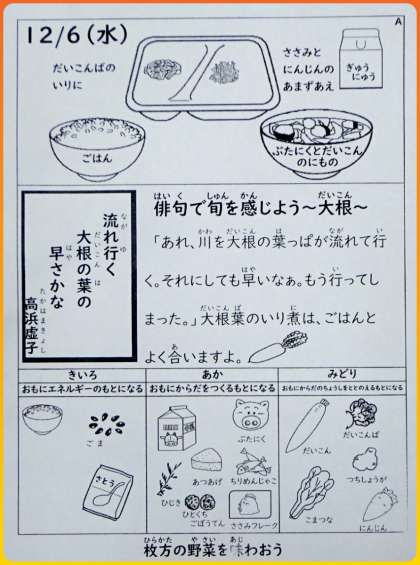 12/6(水)
A
だいこんばの
いりに
ささみと
にんじんの
あまずあえ
ぎゅう
にゅう
ごはん
ぶたにくとだいこん
のにもの
流れ行く
大根の葉の
早さかな
高浜虚子
俳句で旬を感じよう~大根~
「あれ、川を大根の葉っぱが流れて行
く。それにしても早いなぁ。もう行ってし
まった。」大根葉のいり煮は、ごはんと
よく合いますよ。
きいろ
おもにエネルギーのもとになる
ごま
さとう
あか
おもにからだをつくるもとになる
ぶたにく
あつあげ
ちりめんじゃこ
ひじき
ひとくち
ごぼうてん
ささみフレーク
みどり
おもにからだのちょうしをととのえるもとになる
だいこん
だいこんば
つちしょうが
こまつな
にんじん
枚方の野菜を味わおう